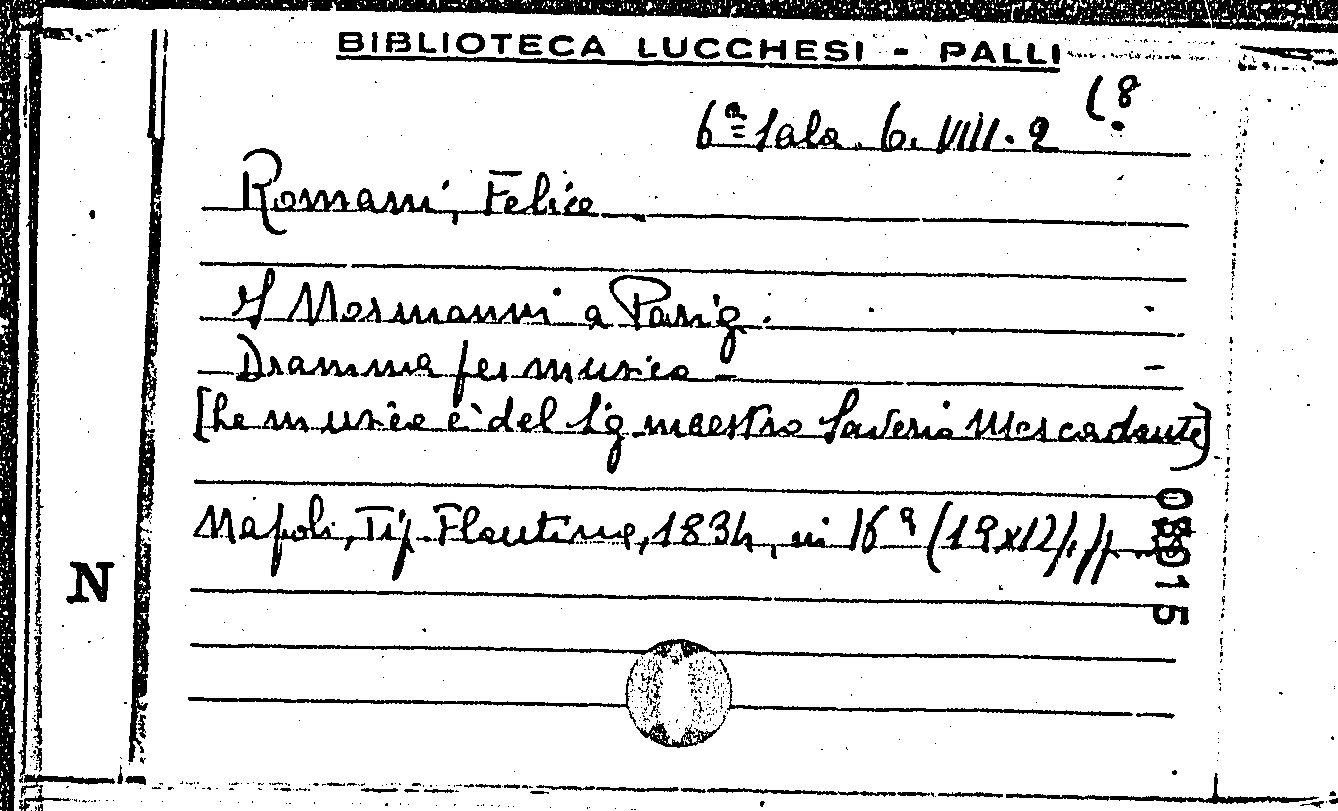 BIBLIOTECA LUCCHESI - PALLI
6ª Sala. 6. VIII. 2 (8
Romani, Felice
I Normanni a Parig.
Dramma per musica -
[La musica è del Sig maestro Saverio Mercadante]
Napoli, Tip. Flautina, 1834, in 16º (19x12), pp.
N
015